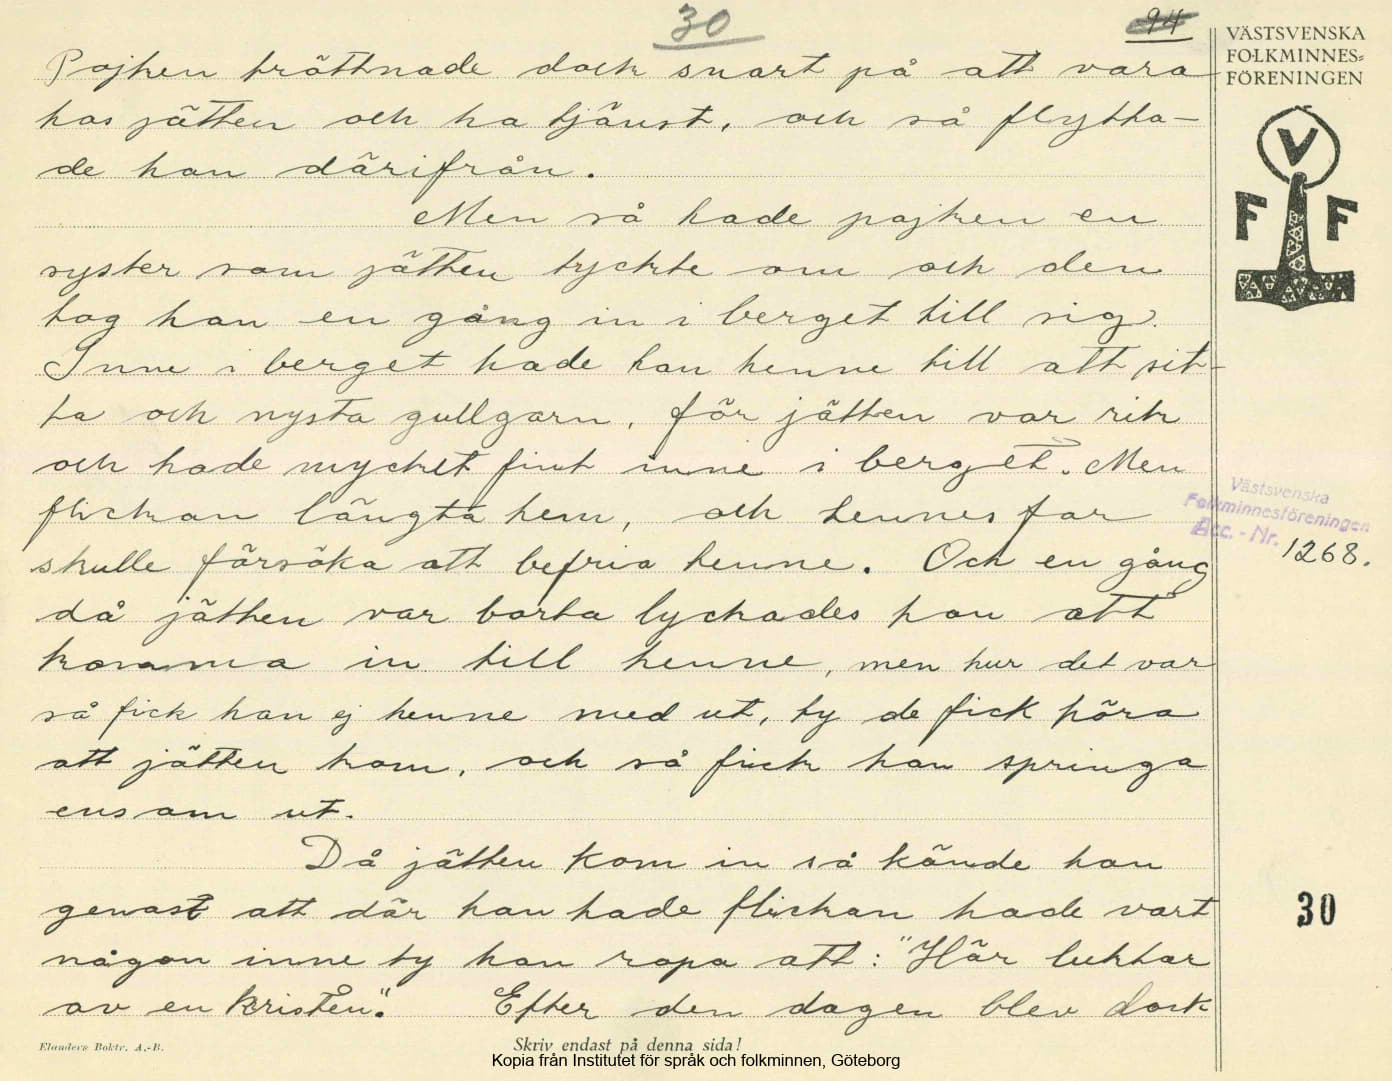 30
94
VÄSTSVENSKA
FOLKMINNES=
FÖRENINGEN
V
F F
Pojken tröttnade dock snart på att vara
hos jätten och ha tjänst, och så flytta-
de han därifrån.
Men så hade pojken en
syster som jätten tyckte om och den
tog han en gång in i berget till sig.
Inne i berget hade han henne till att sit-
ta och nysta gullgarn, för jätten var rik
och hade mycket fint inne i berget. Men
flickan längta hem, och hennes far
skulle försöka att befria henne. Och en gång
då jätten var borta lyckades han att
komma in till henne, men hur det var
så fick han ej henne med ut, ty de fick höra
att jätten kom, och så fick han springa
ensam ut.
Då jätten kom in så kände han
genast att där han hade flickan hade vart
någon inne ty han ropa att: "Här luktar
av en kristen". Efter den dagen blev dock
Västsvenska
Folkminnesföreningen
Acc. - Nr. 1268.
30
Elanders Boktr. A.-B.
Skriv endast på denna sida!
Kopia från Institutet för språk och folkminnen, Göteborg